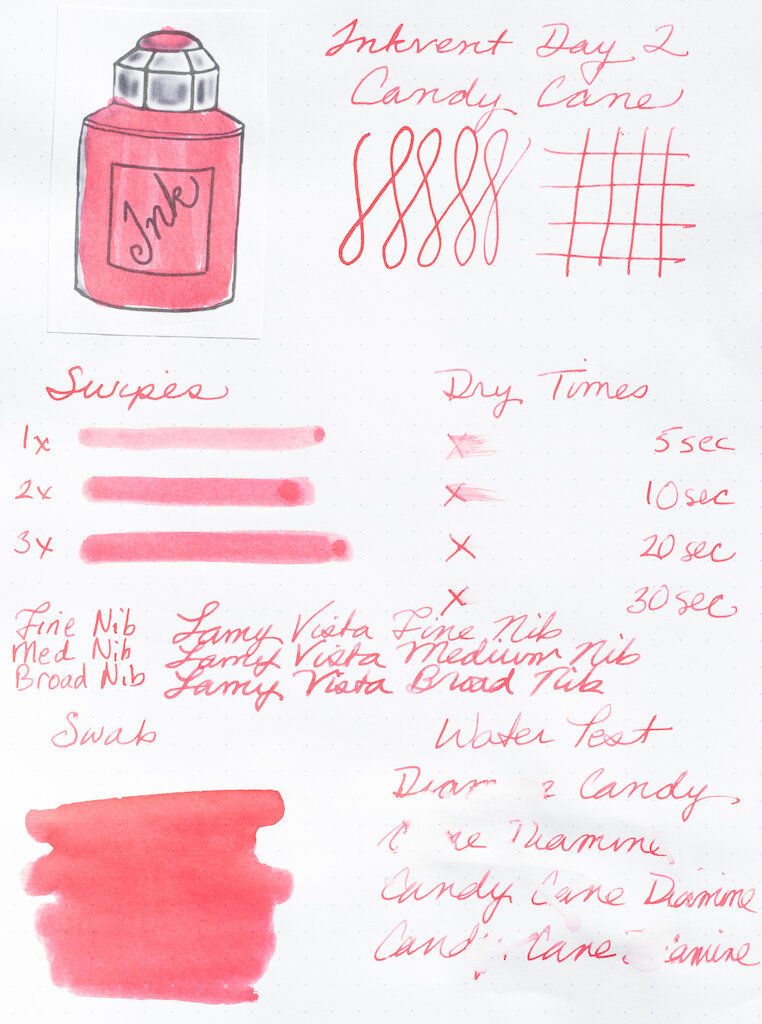 Inkvent Day 2
Candy Cane
Ink
Swipes
1x
2x
3x
Dry Times
x 5 sec
x 10 sec
x 20 sec
x 30 sec
Fine Nib Lamy Vista Fine Nib
Med Nib Lamy Vista Medium Nib
Broad Nib Lamy Vista Broad Nib
Swab
Water Test
Candy
Diamine
Candy Cane Diamine
Cane